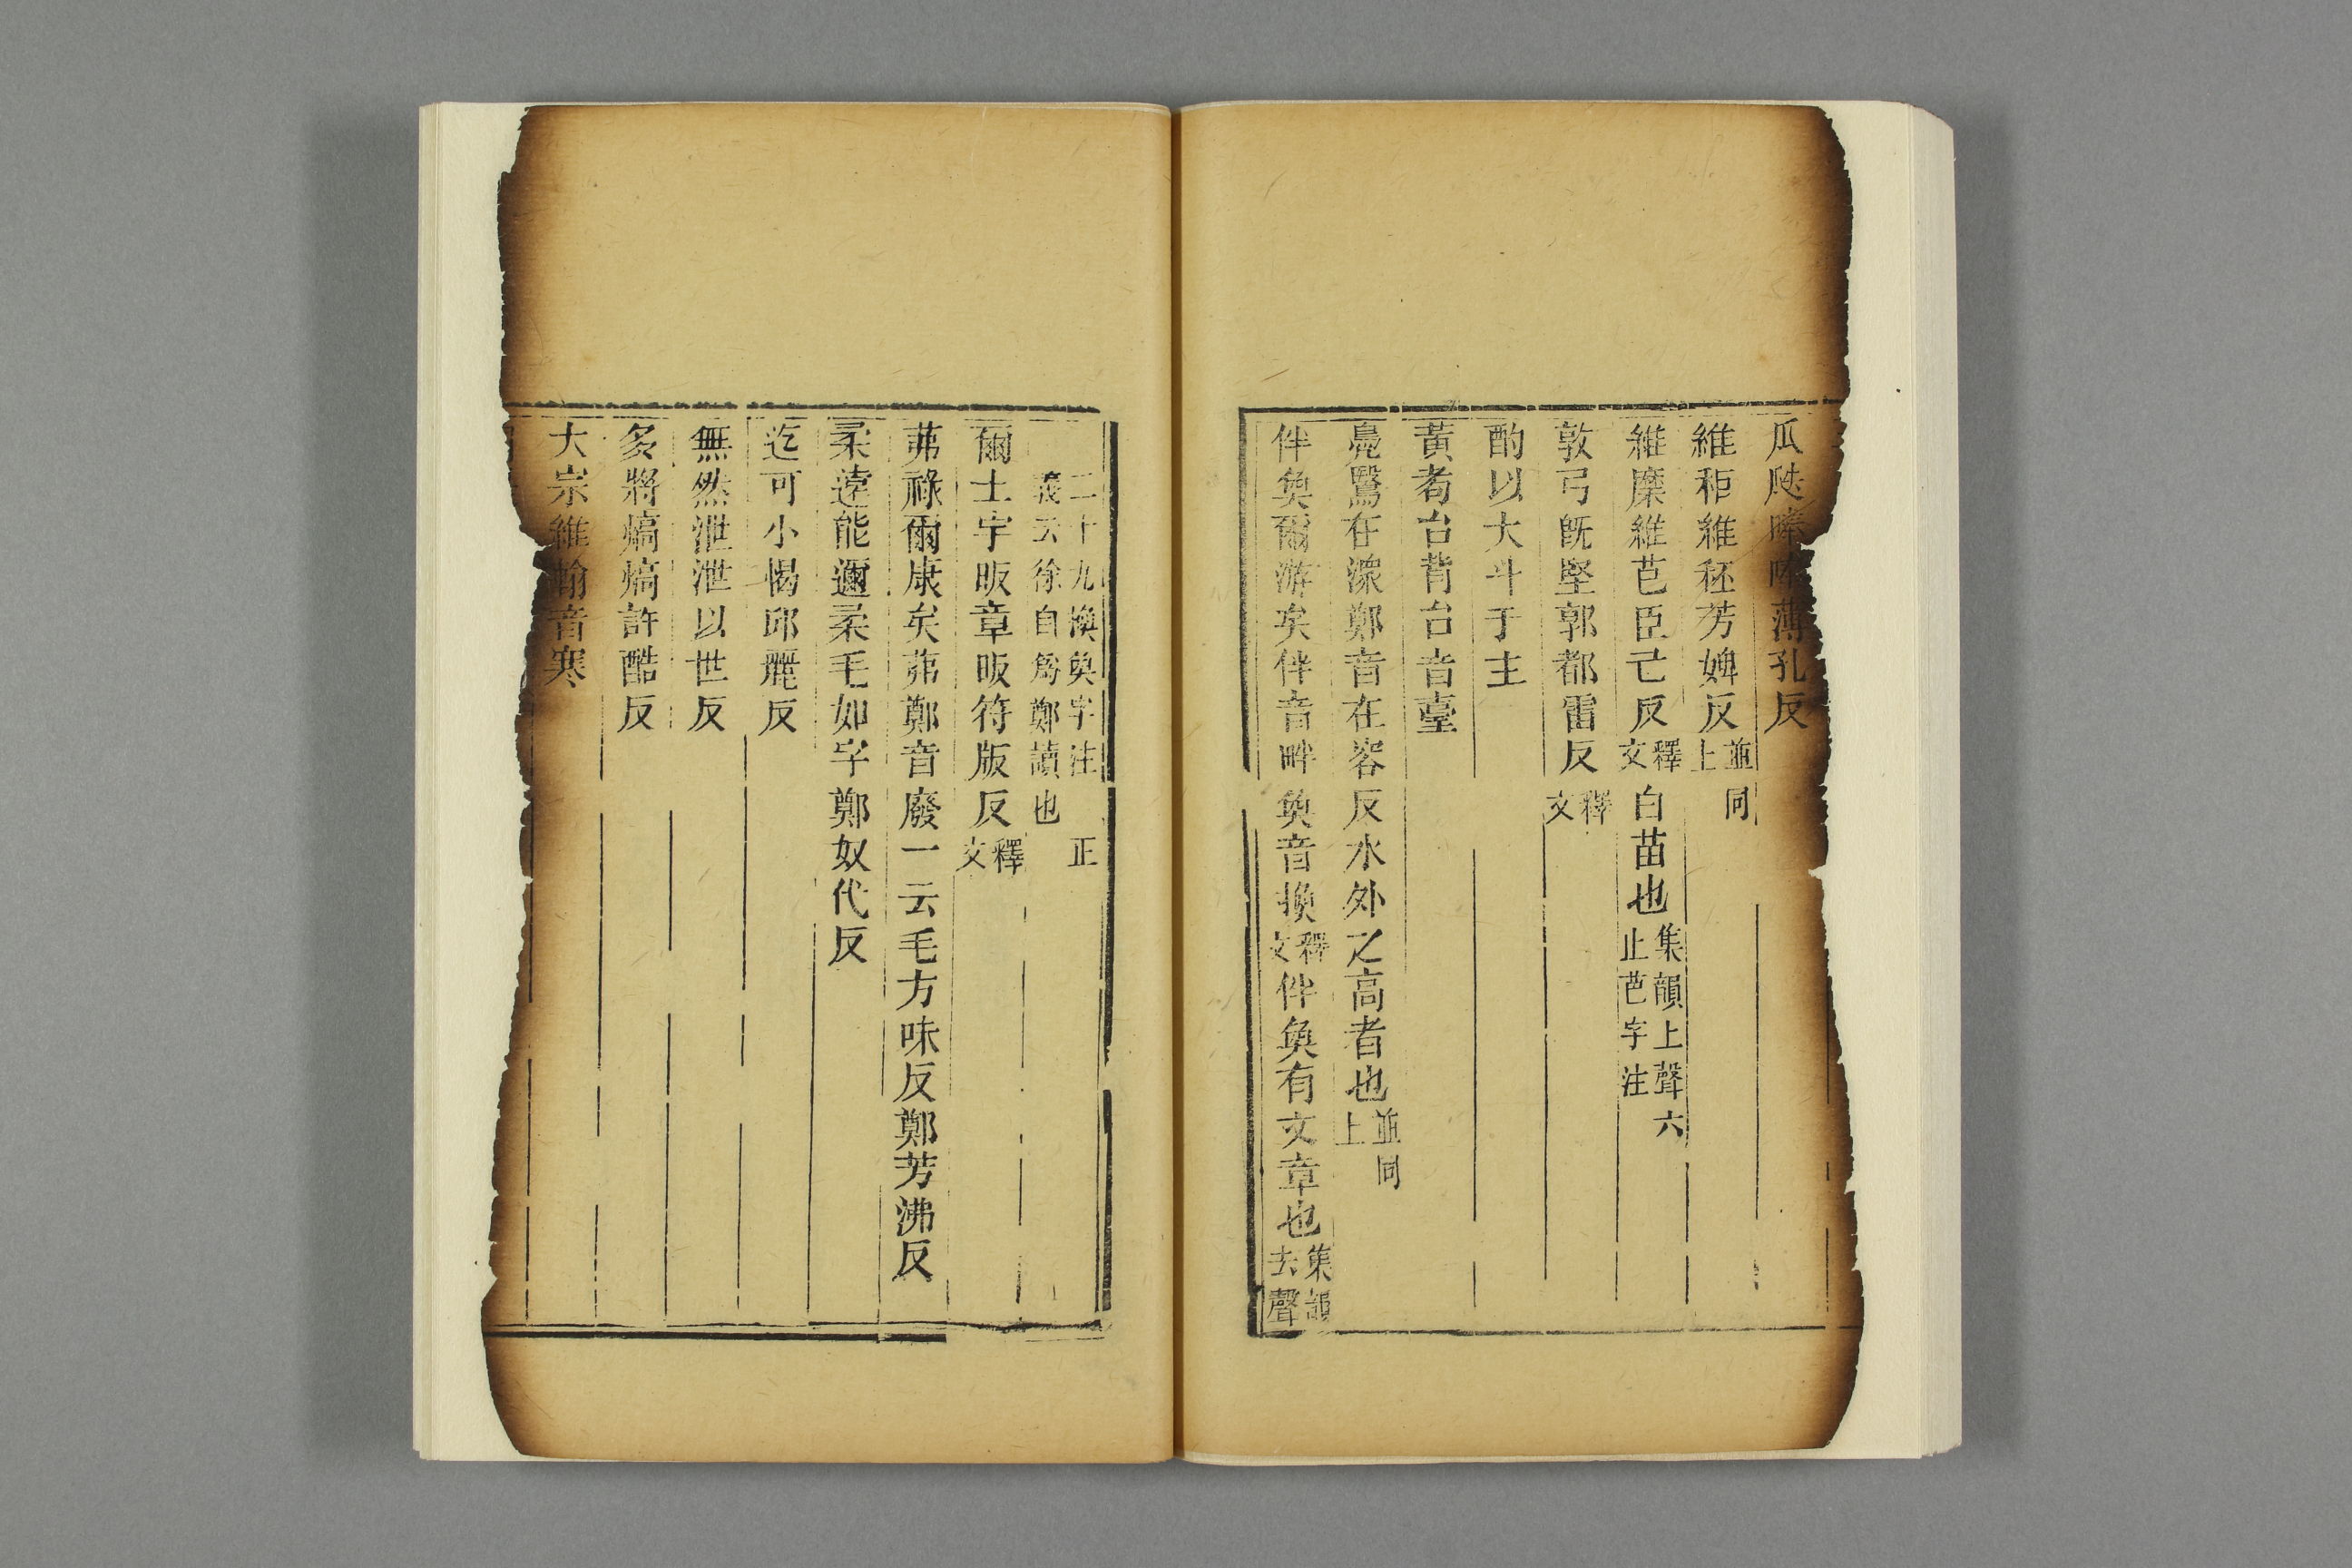 瓜瓞唪唪薄孔反
維秬維秠芳婢反並同上
維穈維芑臣亡反釋文白苗也集韻上聲六止芑字注
敦弓旣堅郭都雷反釋文
酌以大斗于主
黃耉台背台音臺
鳧鷖在潀鄭音在容反水外之高者也並同上
伴奐爾游矣伴音畔奐音換釋文伴奐有文章也集韻去聲
二十九換奐字注正義云徐自爲鄭讀也
爾土宇昄章昄符版反釋文
茀祿爾康矣茀鄭音廢一云毛方味反鄭芳沸反
柔遠能邇柔毛如字鄭奴代反
迄可小愒邱麗反
無然泄泄以世反
多將熇熇許酷反
大宗維翰音寒